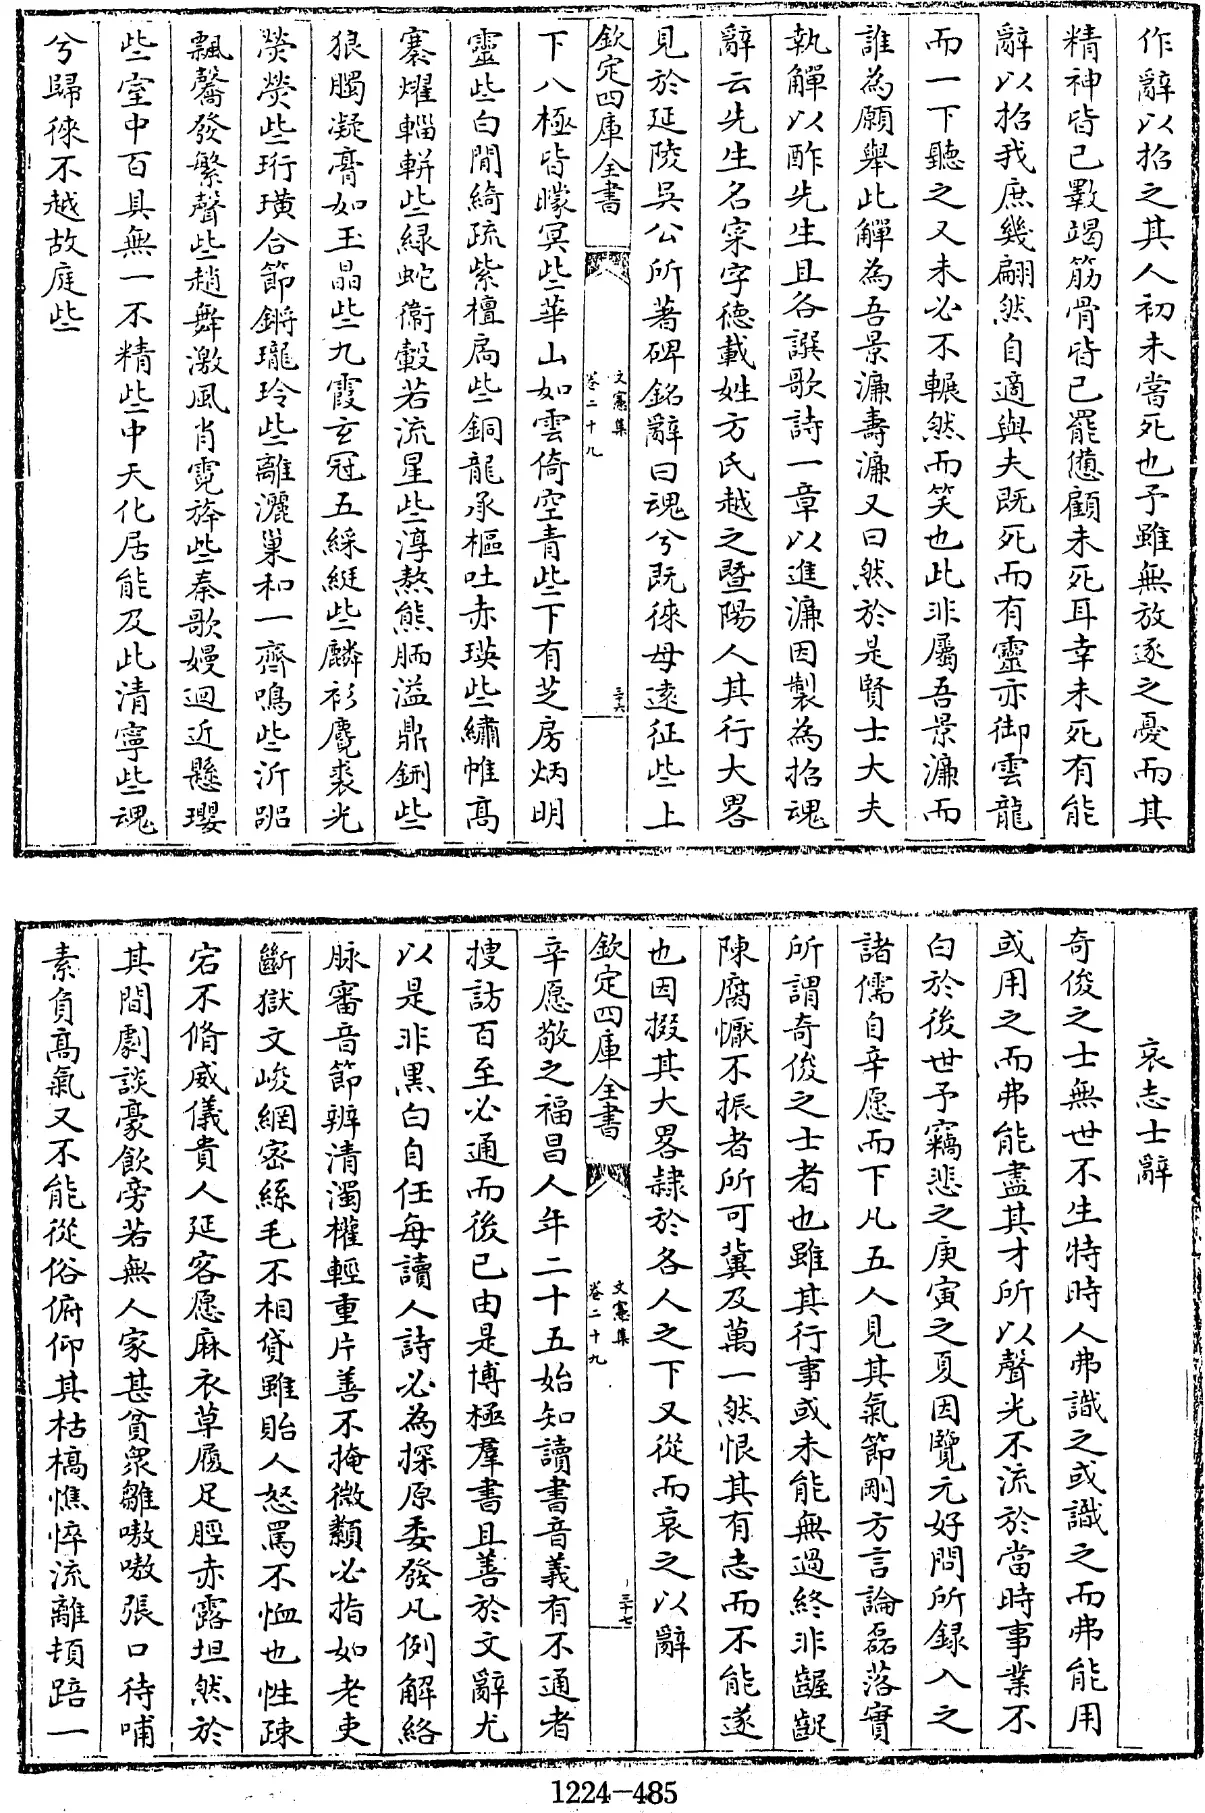 作辭以招之其人初未嘗死也予雖無放逐之憂而其
精神皆已斁竭筋骨皆已罷憊顧未死耳幸未死有能
辭以招我庶幾翩然自適與夫既死而有靈亦御雲龍
而一下聽之又未必不囅然而笑也此非屬吾景濂而
誰為願舉此觶為吾景濂壽濂又曰然於是賢士大夫
執觶以酢先生且各譔歌詩一章以進濂因製為招魂
辭云先生名寀字徳載姓方氏越之暨陽人其行大畧
見於延陵吳公所著碑銘辭曰魂兮既徠毋逺征些上
欽定四庫全書
文憲集
卷二十九
三十六
下八極皆曚冥些華山如雲倚空青些下有芝房炳明
靈些白間綺疏紫檀扃些銅龍承樞吐赤瑛些繡帷高
褰燿輜軿些緑蛇衞轂若流星些淳熬熊胹溢鼎鉶些
狼臅凝膏如玉晶些九霞玄冠五綵綎些麟衫麑裘光
熒熒些珩璜合節鏘瓏玲些離灑巢和一齊鳴些沂
飄驚發繁聲些趙舞激風肖霓旍些秦歌嫚迴近懸瓔
些室中百具無一不精些中天化居能及此清寧些魂
兮歸徠不越故庭些
哀志士辭
奇俊之士無世不生特時人弗識之或識之而弗能用
或用之而弗能盡其才所以聲光不流於當時事業不
白於後世予竊悲之庚寅之夏因覽元好問所録入之
諸儒自辛愿而下凡五人見其氣節剛方言論磊落實
所謂奇俊之士者也雖其行事或未能無過終非齷齪
陳腐懨不振者所可冀及萬一然恨其有志而不能遂
也因掇其大畧隸於各人之下又從而哀之以辭
欽定四庫全書
文憲集
卷二十九
三十七
辛愿敬之福昌人年二十五始知讀書音義有不通者
搜訪百至必通而後已由是博極羣書且善於文辭尤
以是非黒白自任每讀人詩必為探原委發凡例解絡
脉審音節辨清濁權輕重片善不掩微纇必指如老吏
斷獄文峻網宻絲毛不相貸雖貽人怒罵不恤也性疎
宕不脩威儀貴人延客愿麻衣草履足脛赤露坦然於
其間劇談豪飲旁若無人家甚貧衆雛嗷嗷張口待哺
素負高氣又不能從俗俯仰其枯槁憔悴流離頓踣一
1224-485